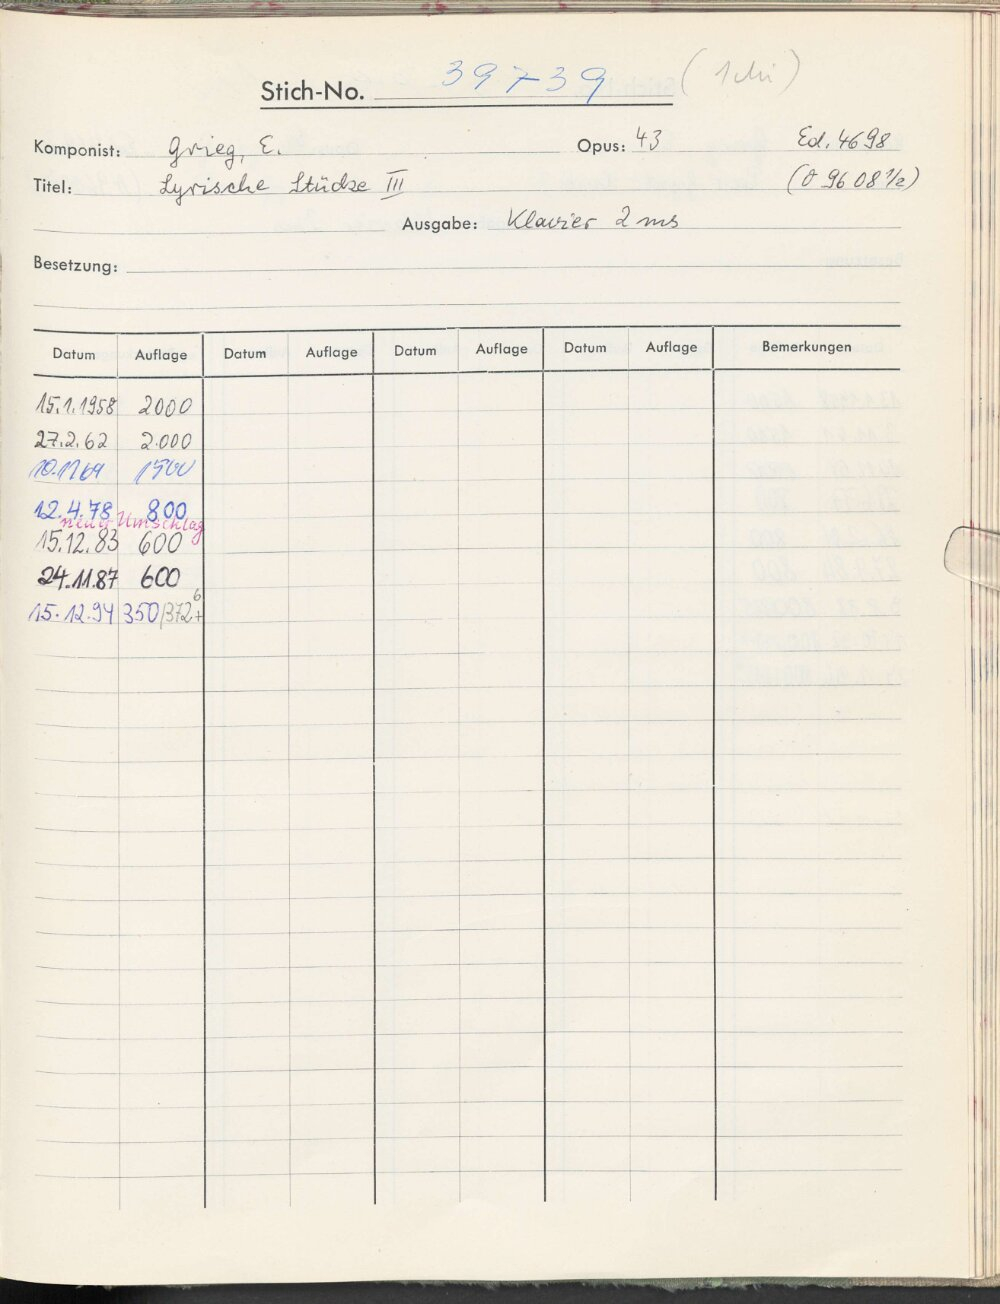 Stich-No. 39739
Komponist: Grieg, E. Opus: 43 Ed. 4698
Titel: Lyrische Stücke III (O 9608 1/2)
Ausgabe: Klavier 2 ms
Besetzung:
Datum Auflage Datum Auflage Datum Auflage Datum Auflage Bemerkungen
15.1.1958 2000
27.2.62 2.000
1500
12.4.78 800
neuer Umschlag
15.12.83 600
24.11.87 600
15.12.94 350/372+6